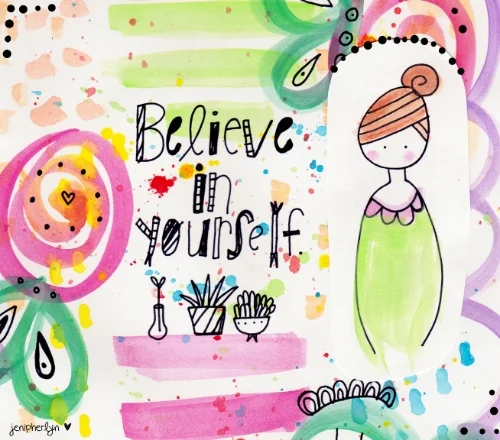 Believe
in
yourself
jenipherlyn ♥